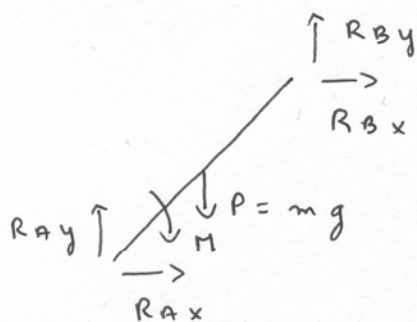 RBy
RBx
P = mg
RAy
M
RAx